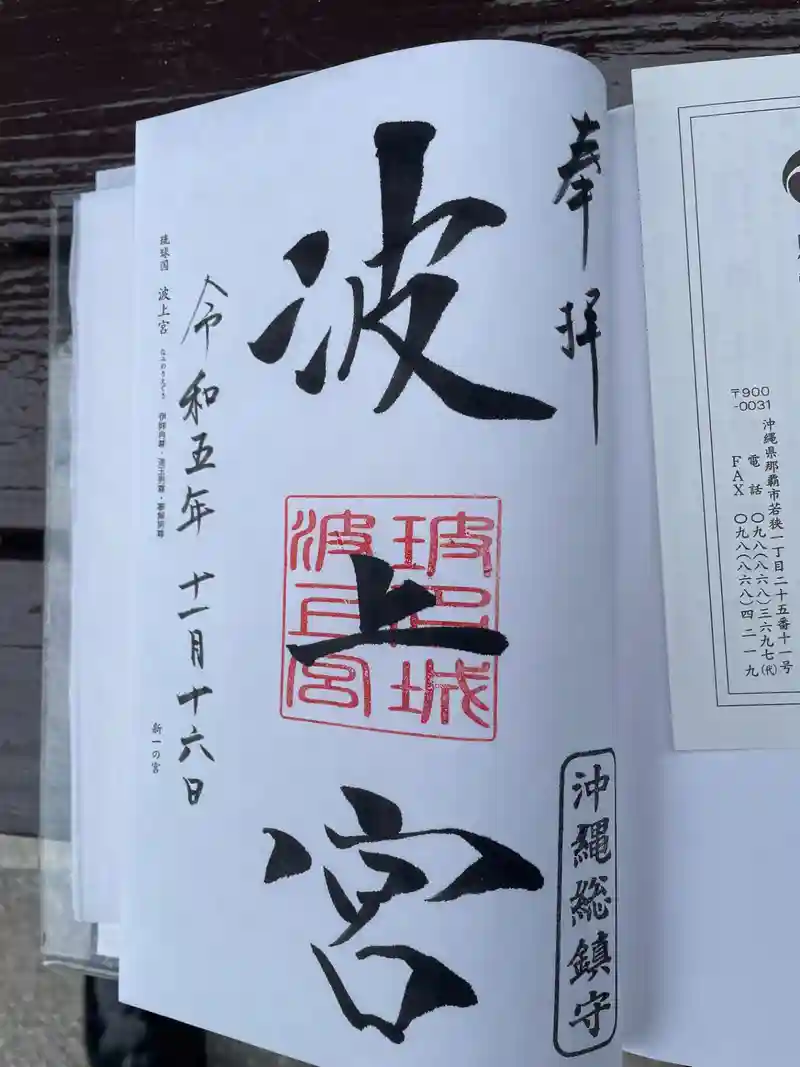 〒900
-0031
沖縄県那覇市若狭一丁目二十五番十一号
電話 〇九八(八六八)三六九七(代)
FAX 〇九八(八六八)四二一九
奉拝
沖縄総鎮守
波上宮
波上宮
令和五年 十一月十六日
琉球国 波上宮 なみのうえぐう
新一の宮